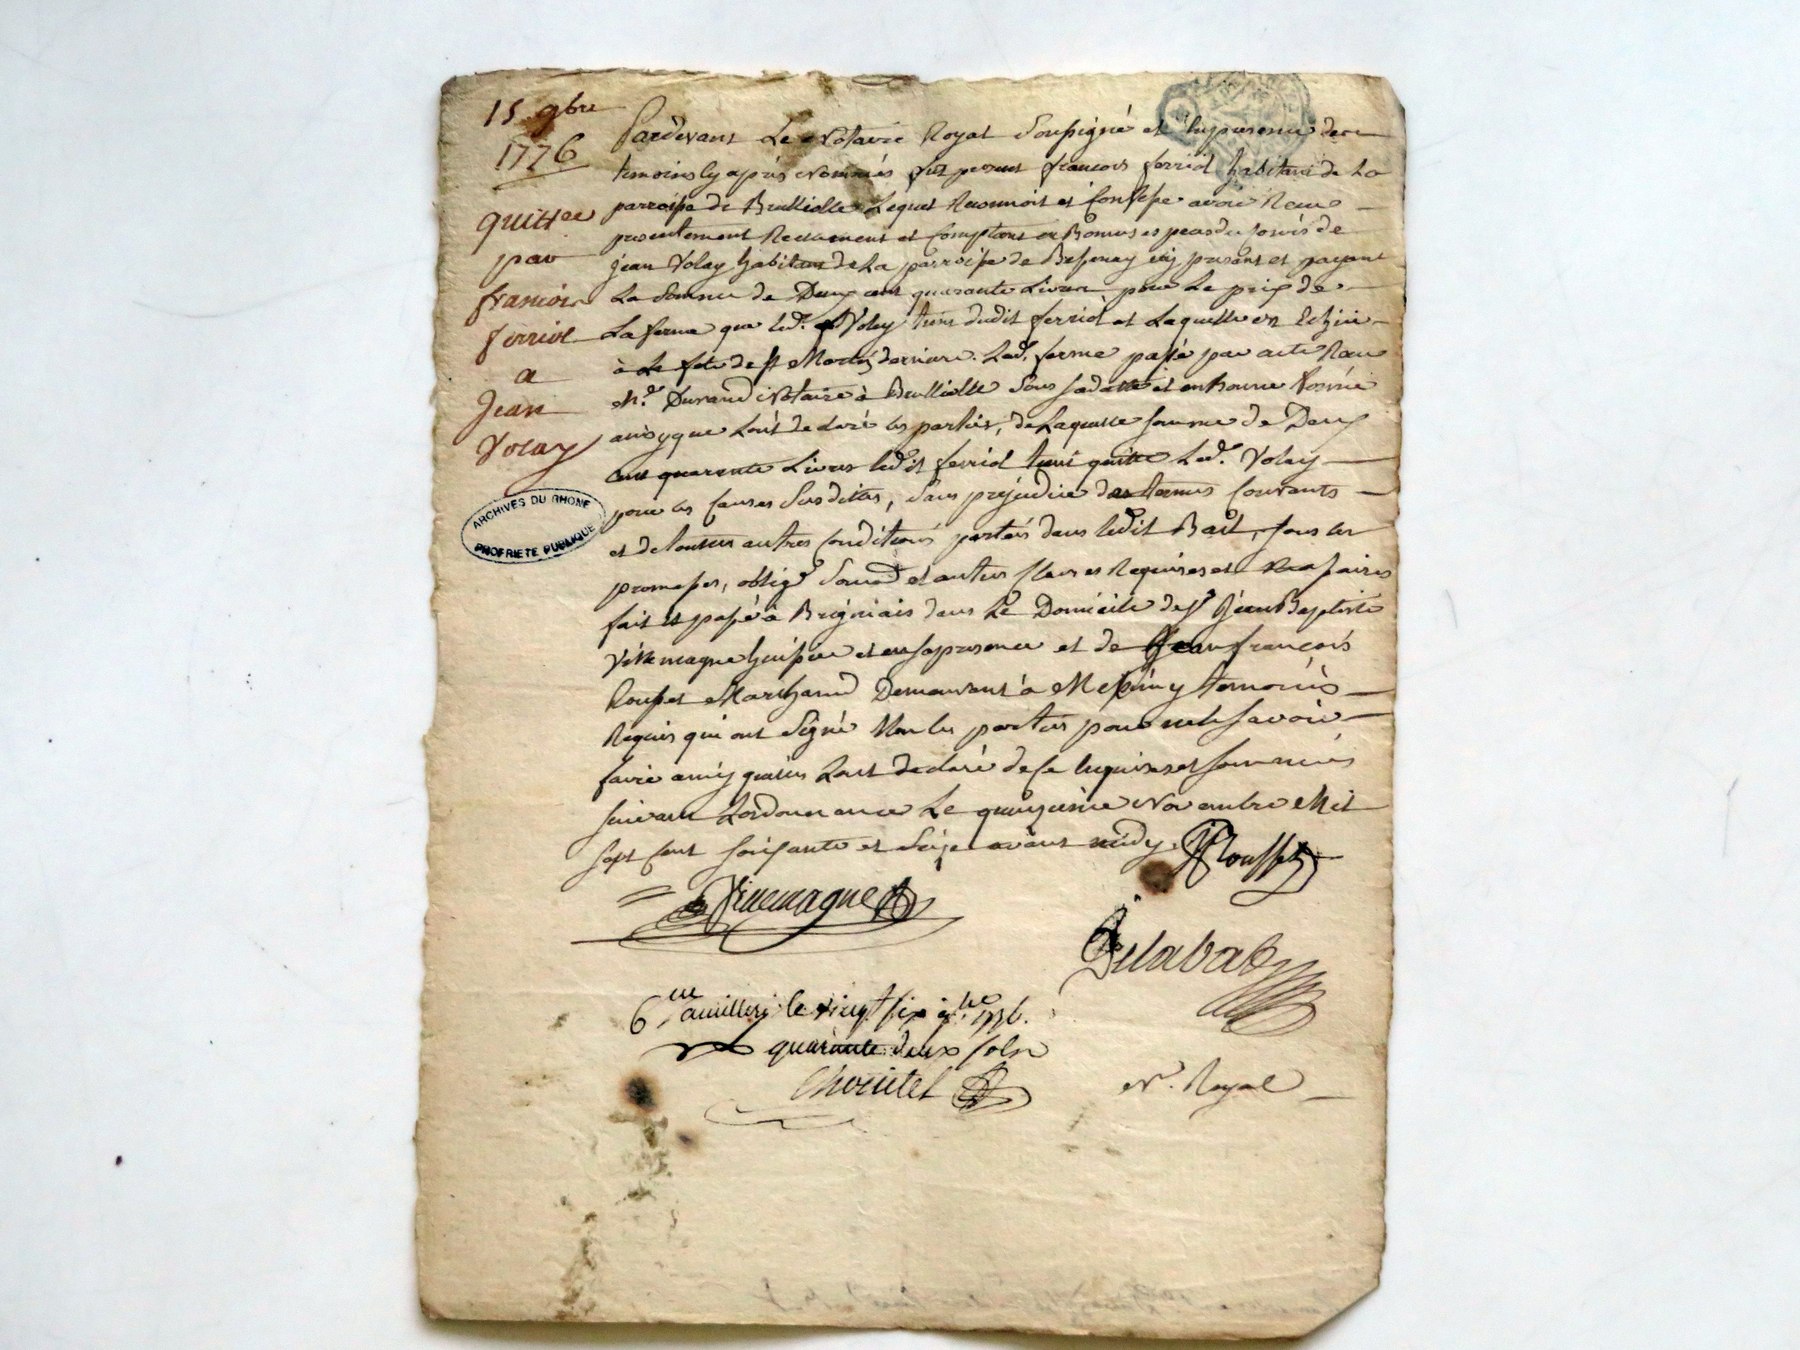 15 9bre
1776
quittce
par
francois
ferriol
a
Jean
Volay
ARCHIVES DU RHONE
PROPRIETE PUBLIQUE
Pardevant Le Notaire Royal Soussigné et en presence des
temoins cy après Nommés fut present francois ferriol habitant de La
parroisse de Brulliolle Lequel Reconnoit et Confesse avoir Reçu
presentement Reellement et Comptant en Bonnes especes du Cours de
jean Volay habitant de La parroisse de Bessenay icy present et payant
La Somme de Deux cent quarante Livres pour Le prix de
La ferme que led. Volay tient dudit ferriol et Laquelle est Echüe
à La fete de st Martin derniere. Lad. ferme passé par acte Reçu
Me. Durand Notaire à Brulliolle Sous sa datte et en bonne forme
ainsy que L'ont declaré les parties, de Laquelle somme de Deux
cent quarante Livres ledit ferriol tient quitte Led. Volay
pour les Causes Susdites, Sans prejudice des termes Courants
et de toutes autres Conditions portées dans ledit Bail, sous les
promesses, oblige Soumd et autres Clauses Requises et Necessaires
fait et passé à Brignais dans Le Domicile de sr Jean Baptiste
Villemagne huissier et en sa presence et de Jean francois
Rousset Marchand Demeurant à Messimy temoins
Requis qui ont Signé Non les parties pour ne le Savoir
faire ainsy qu'elles L'ont declaré de ce enquises et sommées
suivant L'ordonnance Le quinzieme Novembre Mil
sept cent soixante et Seize avant midy.
Rousset
Villemagne
Delabat
Con
a le vingt six 9bre 1776.
R quarante deux sols
Chorutel
No. Royal